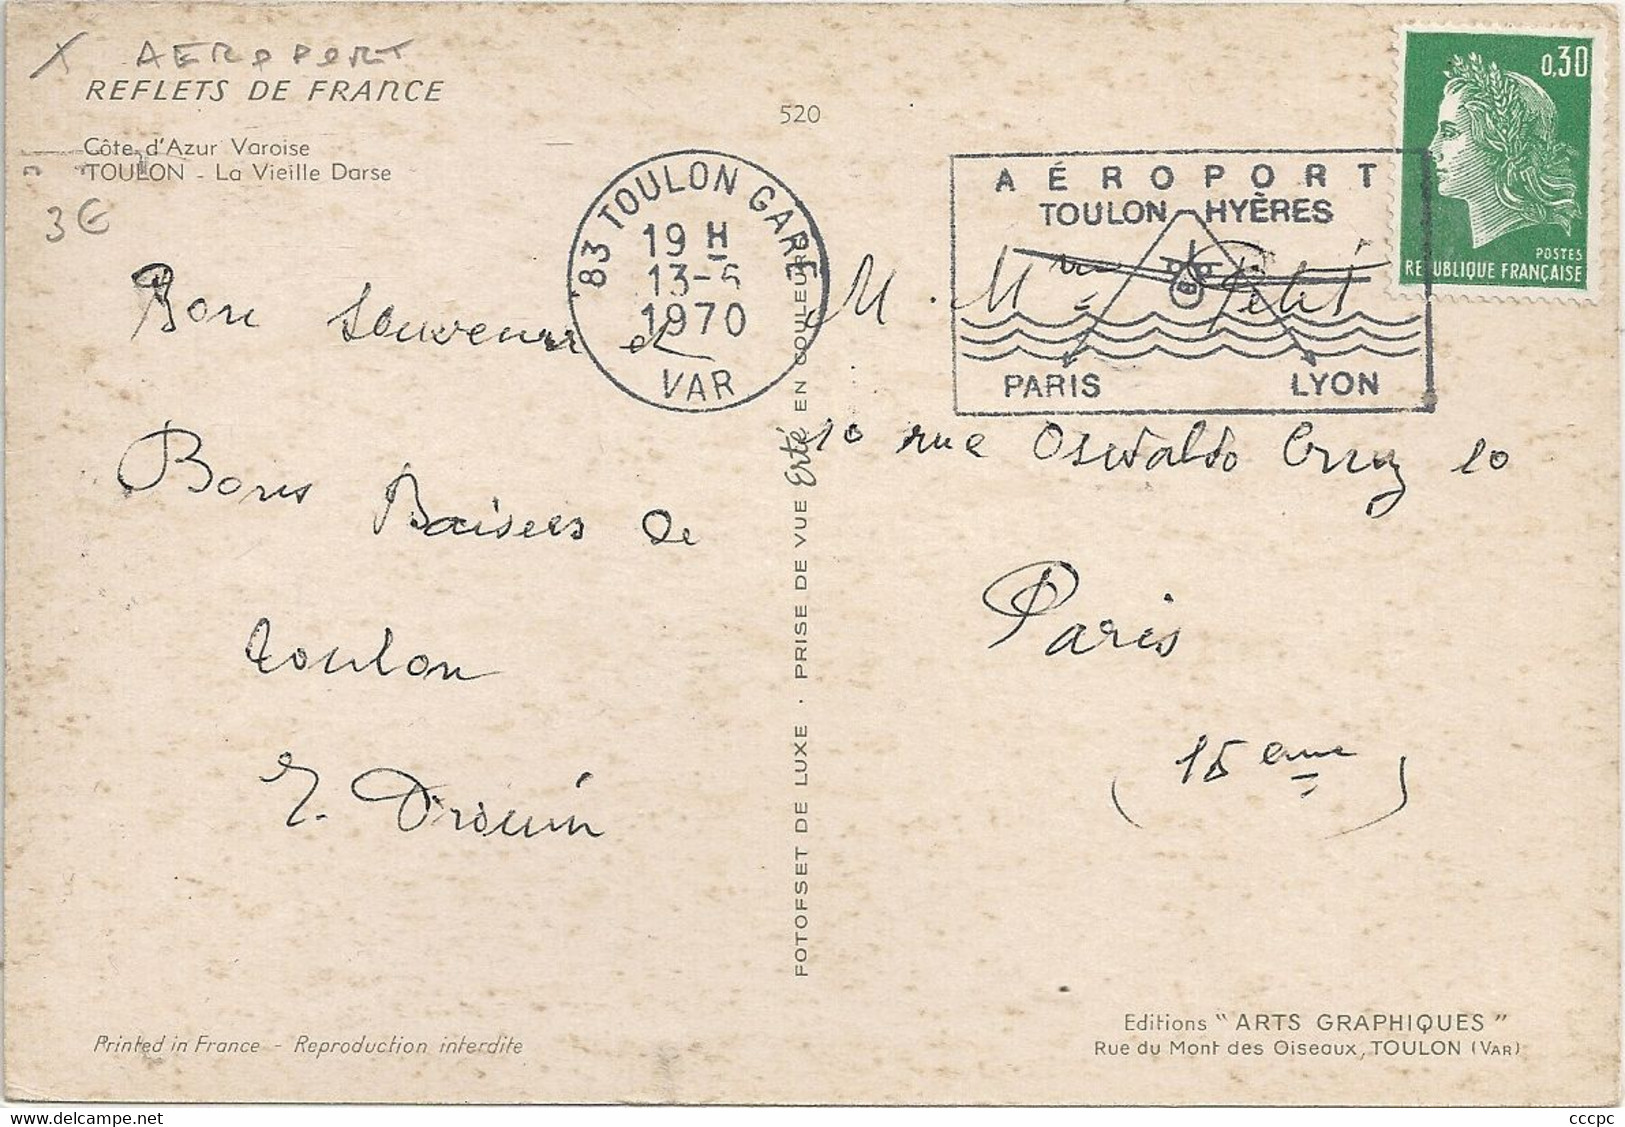 x AEROPORT
REFLETS DE FRANCE
Côte d'Azur Varoise
TOULON - La Vieille Darse
3€
520
83 TOULON GARE
19 H
13-5
1970
VAR
AÉROPORT
TOULON HYÈRES
PARIS LYON
0,30
POSTES
REPUBLIQUE FRANÇAISE
Bon souvenir et
Bons Baisers de
toulon
Drouin
M. Mme Petit
10 rue Oswaldo Cruz 10
Paris
(15 eme)
FOTOFSET DE LUXE · PRISE DE VUE Erté EN COULEURS
Printed in France - Reproduction interdite
Editions "ARTS GRAPHIQUES"
Rue du Mont des Oiseaux, TOULON (VAR)
cccpc